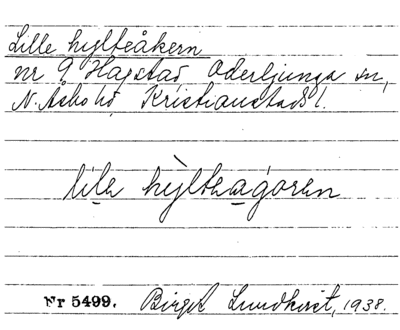 Lille hylteåkern
nr 9 Hagstad, Oderljunga sn,
N. Åsbo hd, Kristianstads l.
lila hỳlteagóren
Nr 5499. Birget Lundkvist, 1938.